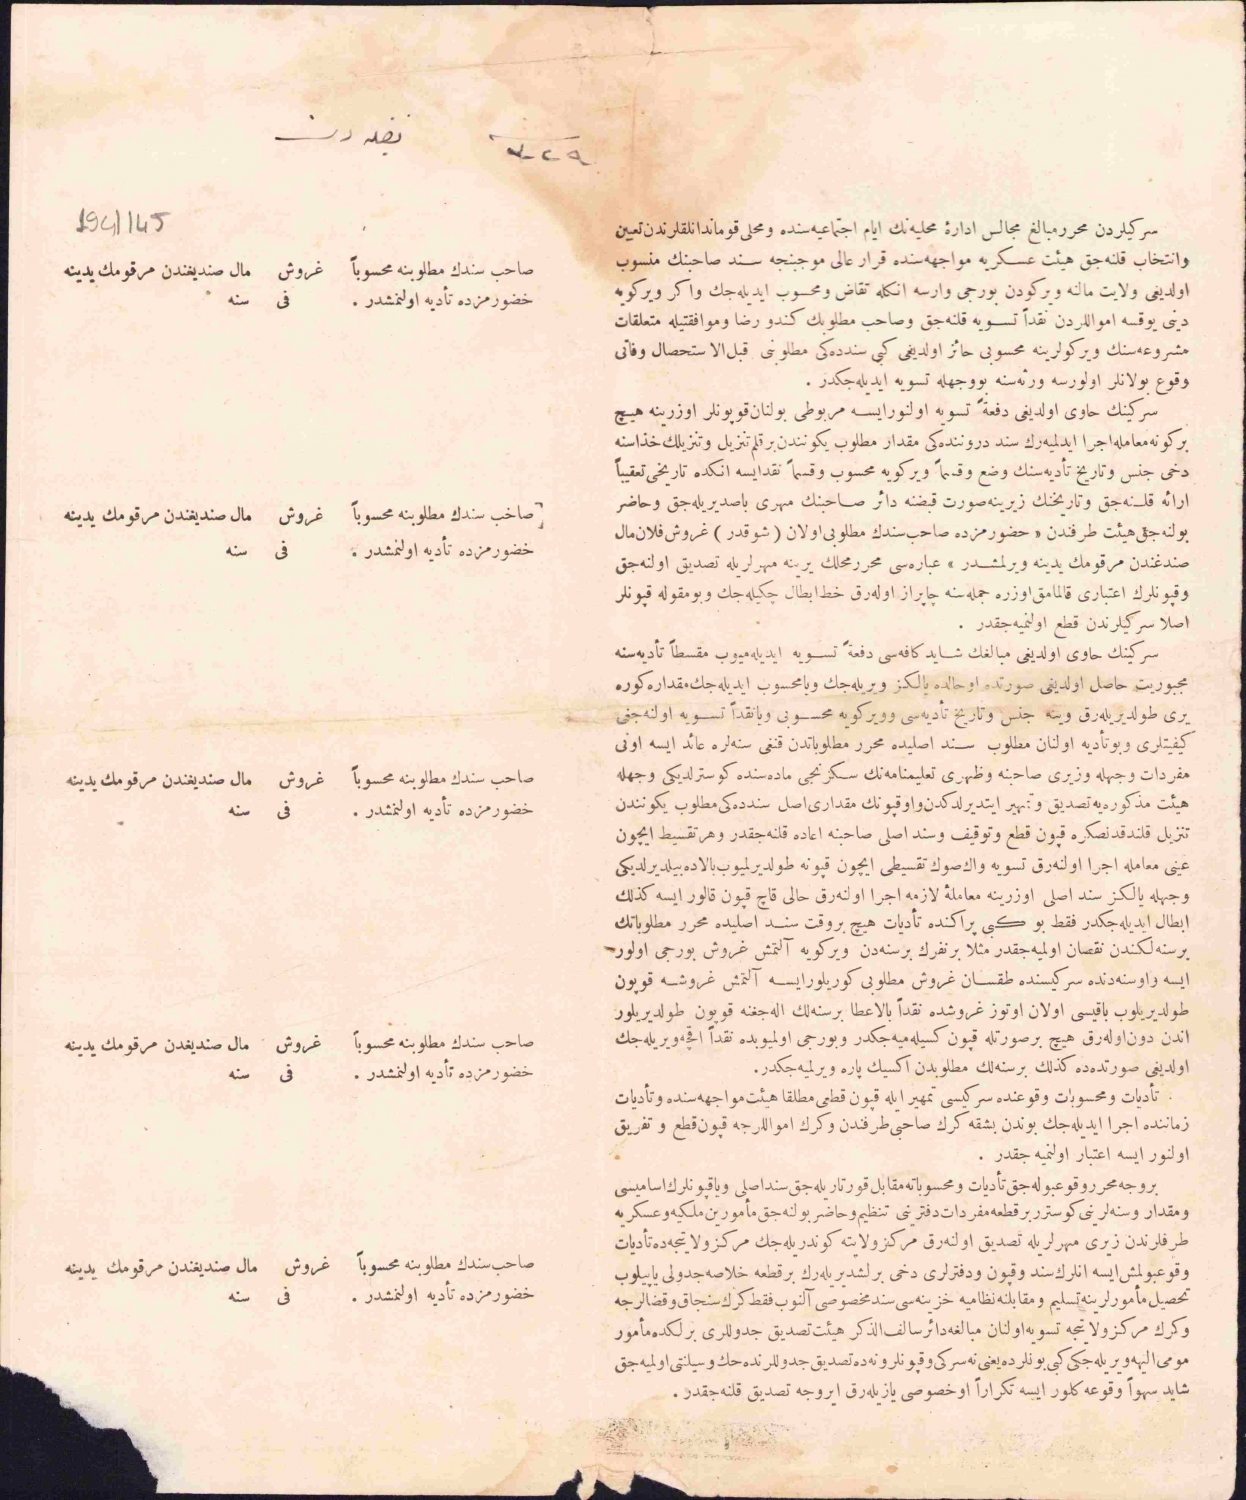 ١٩٤/١٤٥
سركيلردن محرر مبالغ مجالس ادارهٔ محليه‌نك ايام اجتماعيه‌سنده و محلى قوماندانلقلرندن تعيين
وانتخاب قلنه‌جق هيئت عسكريه مواجهه‌سنده قرار عالى موجبنجه سند صاحبنك منسوب
اولديغى ولايت مالنه ويركودن بورجى وارسه انكله تقاض ومحسوب ايديله‌جك واكر ويركويه
دينى يوقسه اموالدن نقداً تسويه قلنه‌جق وصاحب مطلوبك كندو رضا وموافقتيله متعلقات
مشروعه‌سنك ويركولرينه محسوبى حائز اولديغى كبى سنده‌كى مطلوبنى قبل الاستحصال وفاتى
وقوع بولانلر اولورسه ورثه‌سنه بووجهله تسويه ايديله‌جكدر .
سركينك حاوى اولديغى دفعةً تسويه اولنور ايسه مربوطى بولنان قوپونلر اوزرينه هيچ
بركونه معامله اجرا ايدلميه‌رك سند دروننده‌كى مقدار مطلوب يكوننندن برقلم تنزيل وتنزيلك خذاسنه
دخى جنس وتاريخ تأديه‌سنك وضع وقسماً ويركويه محسوب وقسماً نقدايسه انكده تاريخى تعقيباً
ارائه قلنه‌جق وتاريخنك زيرينه صورت قبضنه دائر صاحبنك مهرى باصديريله‌جق وحاضر
بولنه‌جق هيئت طرفندن « حضورمزده صاحب سندك مطلوبى اولان ( شوقدر ) غروش فلان مال
صندغندن مرقومك يدينه ويرلمشدر » عباره‌سى محرر محلك يرينه مهرلريله تصديق اولنه‌جق
وقپونلرك اعتبارى قالمامق اوزره جمله‌سنه چاپراز اوله‌رق خط ابطال چكيله‌جك وبومقوله قپونلر
اصلا سركيلرندن قطع اولنميه‌جقدر .
سركينك حاوى اولديغى مبالغك شايد كافه‌سى دفعةً تسويه ايديله‌ميوب مقسطاً تأديه‌سنه
مجبوريت حاصل اولديغى صورتده اوحالده يالكز ويريله‌جك ويا محسوب ايديله‌جك مقداره كوره
يرى طولديريله‌رق وينه جنس وتاريخ تأديه‌سى وويركويه محسوبى ويا نقداً تسويه اولنه‌جغى
كيفيتلرى وبوتأديه اولنان مطلوب سند اصليده محرر مطلوباتدن قنغى سنه‌لره عائد ايسه اونى
مفردات وجهله وزيرى صاحبنه وظهرى تعليمنامه‌نك سكزنجى ماده‌سنده كوسترلديكى وجهله
هيئت مذكوره‌يه تصديق وتمهير ايتديرلدكدن واوقپونك مقدارى اصل سنده‌كى مطلوب يكوننندن
تنزيل قلندقدنصكره قپون قطع وتوقيف وسند اصلى صاحبنه اعاده قلنه‌جقدر وهر تقسيط ايچون
عينى معامله اجرا اولنه‌رق تسويه واك صوك تقسيطى ايچون قپونه طولديرلميوب بالاده بيلديرلديكى
وجهله يالكز سند اصلى اوزرينه معاملهٔ لازمه اجرا اولنه‌رق حالى قاچ قپون قالور ايسه كذلك
ابطال ايديله‌جكدر فقط بو كبى پراكنده تأديات هيچ بروقت سند اصليده محرر مطلوباتك
برسنه‌لكندن نقصان اولميه‌جقدر مثلا برنفرك برسنه‌دن ويركويه آلتمش غروش بورجى اولور
ايسه واوسنه‌دنده سركيسنده طقسان غروش مطلوبى كوريلور ايسه آلتمش غروشه قوپون
طولديريلوب باقيسى اولان اوتوز غروشده نقداً بالاعطا برسنه‌لك اله‌جغنه قوپون طولديريلور
اندن دون اوله‌رق هيچ برصورتله قپون كسيله‌ميه‌جكدر وبورجى اولميوبده نقداً اقچه ويريله‌جك
اولديغى صورتده‌ده كذلك برسنه‌لك مطلوبدن اكسيك پاره ويرلميه‌جكدر.
تأديات ومحسوبات وقوعنده سركيسى تمهير ايله قپون قطعى مطلقا هيئت مواجهه‌سنده وتأديات
زماننده اجرا ايديله‌جك بوندن بشقه كرك صاحبى طرفندن وكرك اموالرجه قپون قطع و تفريق
اولنور ايسه اعتبار اولنميه جقدر .
بروجه محرر وقوعبوله‌جق تأديات ومحسوباته مقابل قورتاريله‌جق سند اصلى وياقپونلرك اساميسى
ومقدار وسنه‌لرينى كوسترر برقطعه مفردات دفترينى تنظيم وحاضر بولنه‌جق مأمورين ملكيه وعسكريه
طرفلرندن زيرى مهرلريله تصديق اولنه‌رق مركز ولايته كوندريله‌جك مركز ولايتجه‌ده تأديات
وقوعبولمش ايسه انلرك سند وقپون ودفترلرى دخى برلشديريله‌رك برقطعه خلاصه جدولى ياپيلوب
تحصيل مأمورلرينه تسليم ومقابلنه نظاميه خزينه‌سى سند مخصوصى آلنوب فقط كرك سنجاق وقضالرجه
وكرك مركز ولايتجه تسويه اولنان مبالغه دائر سالف الذكر هيئت تصديق جدوللرى برلكده مأمور
مومى اليهه ويريله‌جكى كبى بونلرده يعنى نه سركى وقپونلر ونه‌ده تصديق جدوللرنده حك وسيلنتى اولميه‌جق
شايد سهواً وقوعه كلور ايسه تكراراً اوخصوصى يازيله‌رق ايروجه تصديق قلنه‌جقدر .
صاحب سندك مطلوبنه محسوباً غروش مال صنديغندن مرقومك يدينه
حضورمزده تأديه اولنمشدر . فى سنه
صاحب سندك مطلوبنه محسوباً غروش مال صنديغندن مرقومك يدينه
حضورمزده تأديه اولنمشدر . فى سنه
صاحب سندك مطلوبنه محسوباً غروش مال صنديغندن مرقومك يدينه
حضورمزده تأديه اولنمشدر . فى سنه
صاحب سندك مطلوبنه محسوباً غروش مال صنديغدن مرقومك يدينه
حضورمزده تأديه اولنمشدر . فى سنه
صاحب سندك مطلوبنه محسوباً غروش مال صنديغندن مرقومك يدينه
حضورمزده تأديه اولنمشدر . فى سنه